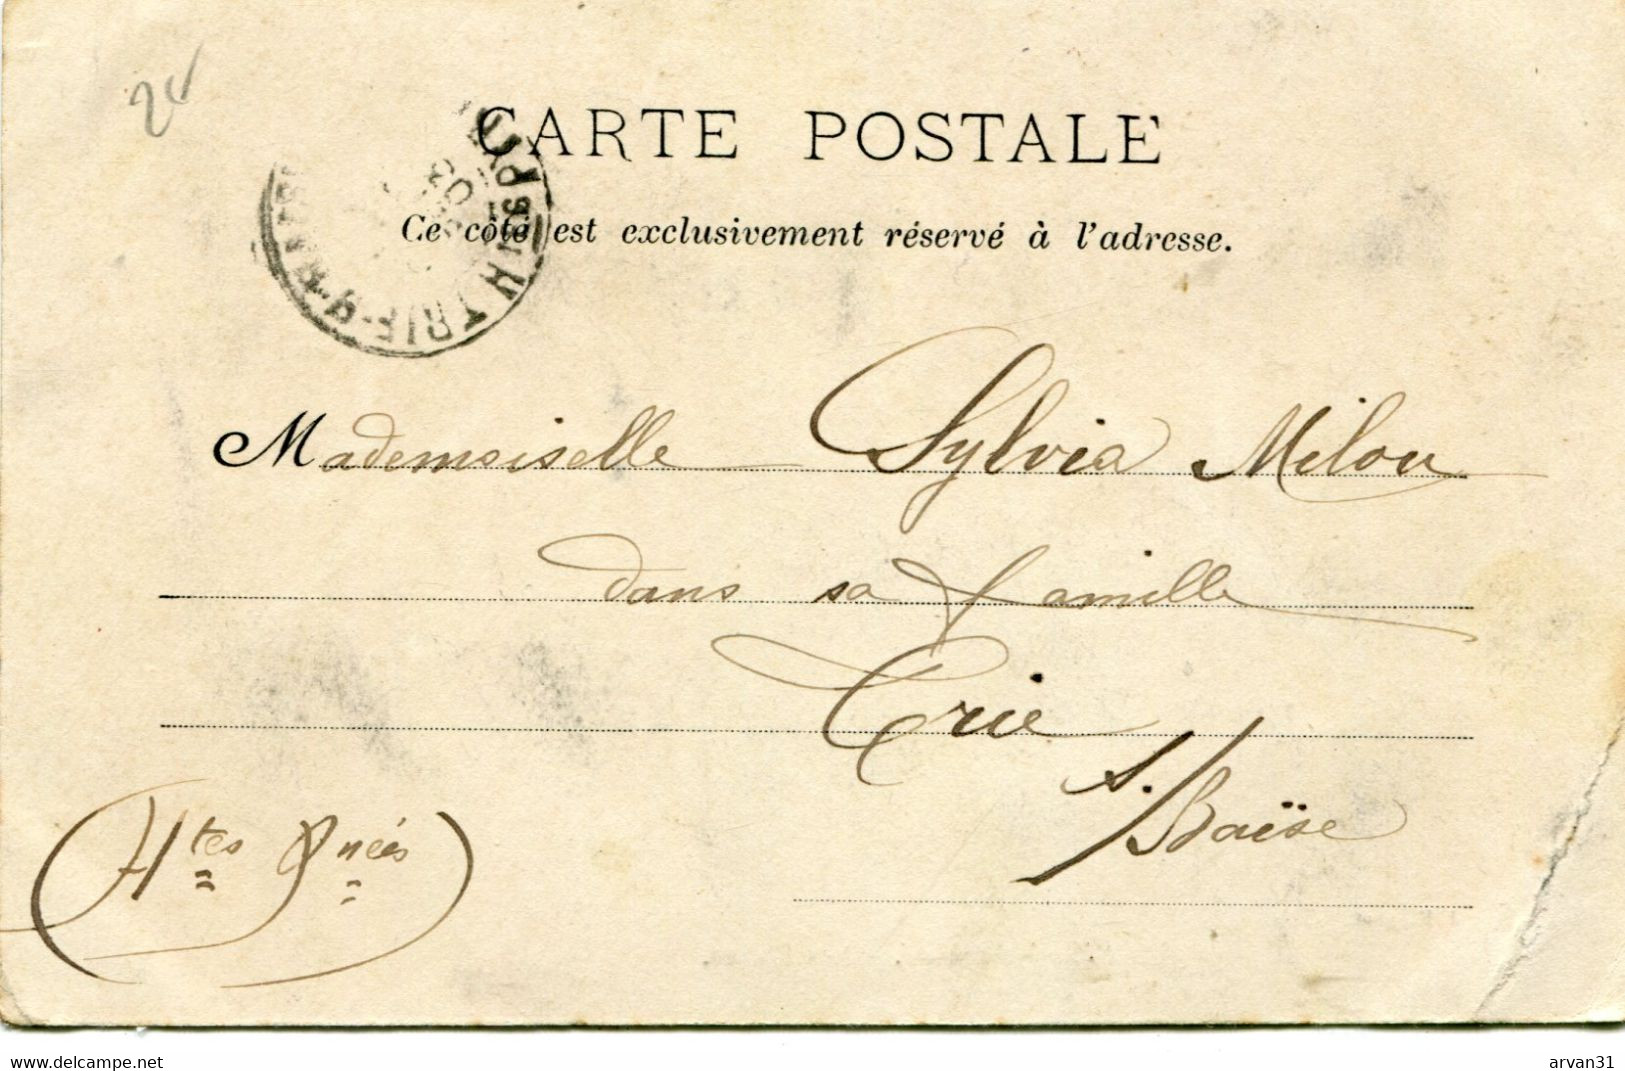 24
CARTE POSTALE
Ce côté est exclusivement réservé à l'adresse.
TRIE
Mademoiselle Sylvia Milou
dans sa famille
Trie
s/Baïse
(Htes Pnées)
delcampe.net
arvan31